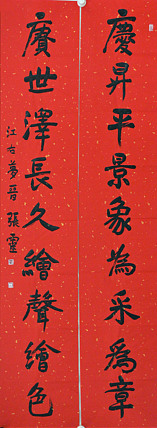 慶昇平景象為采為章
賡世澤長久繪聲繪色
江右夢晉張靈